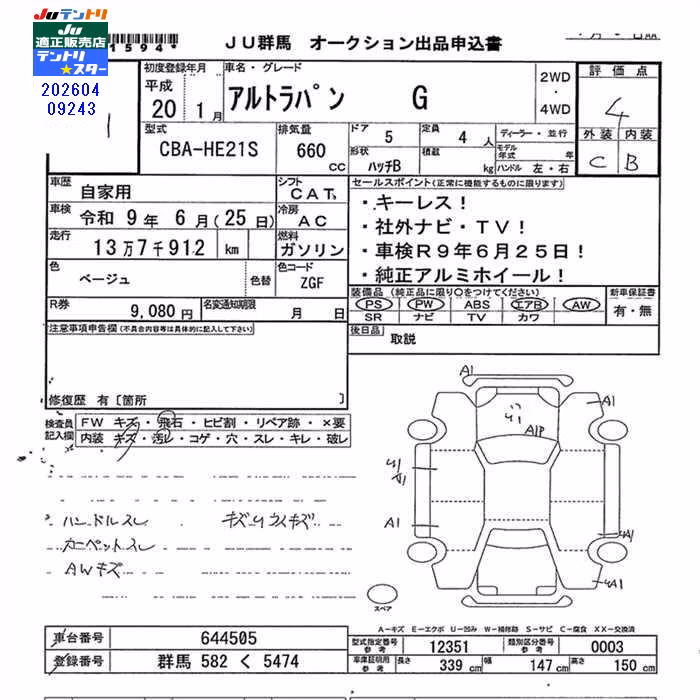 JUテントリ
JU
適正販売店
テントリ
★スター
202604
09243
1594*
JU群馬 オークション出品申込書
初度登録年月
平成
20 1月
車名・グレード
アルトラパン G
2WD
・
4WD
評価点
4
外装 内装
C B
型式
CBA-HE21S
排気量
660 CC
ドア 5
定員 4 人
形状 ハッチB
積載 kg
ディーラー・並行
モデル年式 年
ハンドル 左・右
車歴 自家用
シフト CAT
車検 令和 9年 6月(25日)
冷房 AC
走行 13万7千912 km
燃料 ガソリン
色 ベージュ 色替
色コード ZGF
R券 9,080円
名変通知期限 月 日
セールスポイント(正常に機能するものに限ります)
・キーレス!
・社外ナビ・TV!
・車検R9年6月25日!
・純正アルミホイール!
装備品 (純正品に限り○をつけてください)
PS PW ABS エアB AW
SR ナビ TV カワ
新車保証書
有・無
後日品 取説
注意事項申告欄(不具合内容等は具体的に記入して下さい)
修復歴 有〔箇所 〕
検査員記入欄
FW キズ・飛石・ヒビ割・リペア跡・×要
内装 キズ・汚レ・コゲ・穴・スレ・キレ・破レ
ハンドルスレ キズリ
カーペットスレ
AWキズ
A1
A1
A1P
A1
A1
A1
スペア
A-キズ E-エクボ U-凹み W-補修跡 S-サビ C-腐食 XX-交換済
車台番号 644505
登録番号 群馬 582 く 5474
型式指定番号 参考 12351
類別区分番号 参考 0003
車庫証明用 参考
長さ 339 cm
幅 147 cm
高さ 150 cm